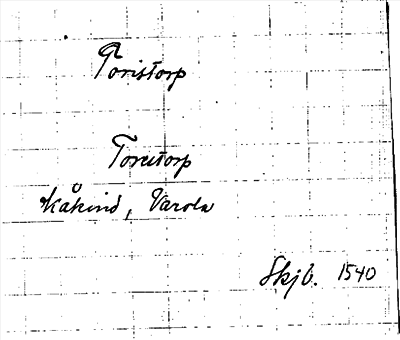 Toristorp
Toretorp
Kåkind, Varola
Skjb. 1540